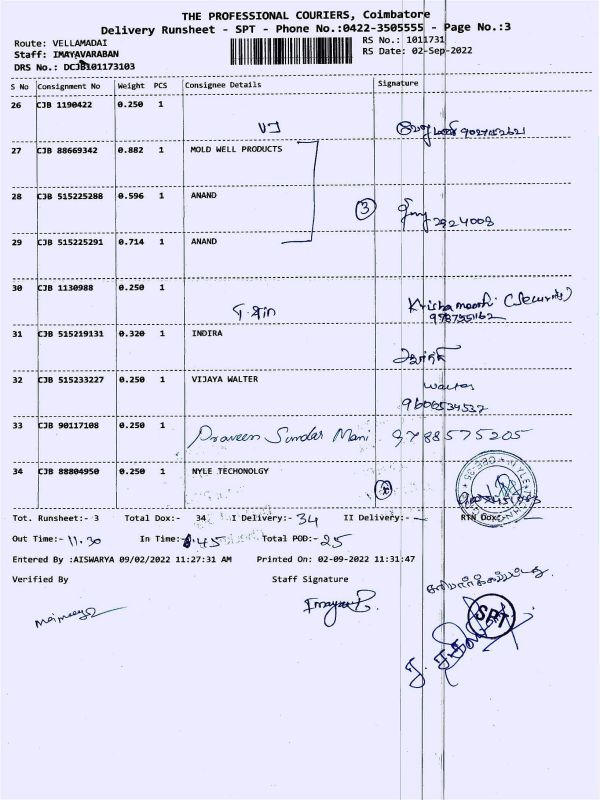 THE PROFESSIONAL COURIERS, Coimbatore
Delivery Runsheet - SPT - Phone No.:0422-3505555 - Page No.:3
Route: VELLAMADAI
RS No.: 1011731
Staff: IMAYAVARABAN
RS Date: 02-Sep-2022
DRS No.: DCJB101173103
S No Consignment No Weight PCS Consignee Details Signature
26 CJB 1190422 0.250 1
27 CJB 88669342 0.882 1 MOLD WELL PRODUCTS
28 CJB 515225288 0.596 1 ANAND
3
2924008
29 CJB 515225291 0.714 1 ANAND
30 CJB 1130988 0.250 1
31 CJB 515219131 0.320 1 INDIRA
32 CJB 515233227 0.250 1 VIJAYA WALTER
Walter
9606534537
33 CJB 90117108 0.250 1
Praveen Sundar Mani 9788575205
34 CJB 88804950 0.250 1 NYLE TECHONOLGY
Tot. Runsheet:- 3 Total Dox:- 34 I Delivery:- 34 II Delivery:- - RTN Dox:- -
Out Time:- 11.30 In Time:- Total POD:- 25
Entered By :AISWARYA 09/02/2022 11:27:31 AM Printed On: 02-09-2022 11:31:47
Verified By Staff Signature
SPT